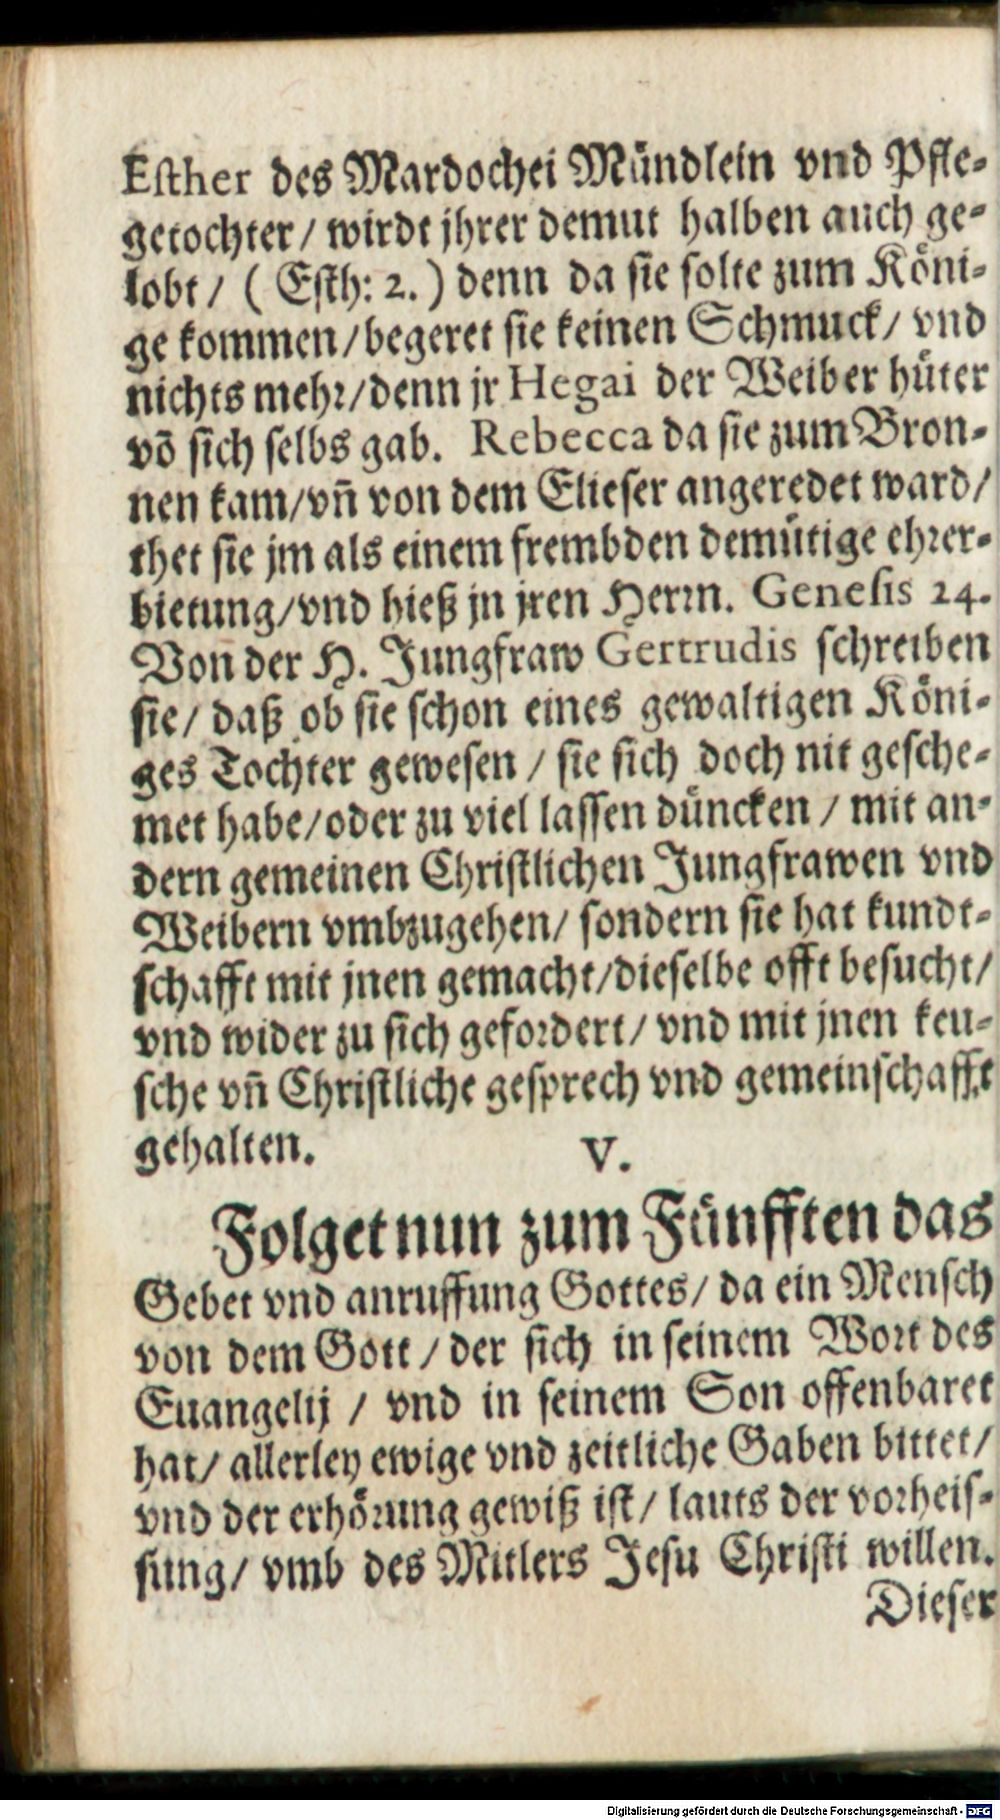 Esther des Mardochei Mündlein vnd Pfle-
getochter / wirdt jhrer demut halben auch ge-
lobt / ( Esth: 2. ) denn da sie solte zum Köni-
ge kommen / begeret sie keinen Schmuck / vnd
nichts mehr / denn jr Hegai der Weiber hüter
võ sich selbs gab. Rebecca da sie zum Bron-
nen kam / vñ von dem Elieser angeredet ward /
thet sie jm als einem frembden demütige ehrer-
bietung / vnd hieß jn jren Herrn. Genesis 24.
Von der H. Jungfraw Gertrudis schreiben
sie / daß ob sie schon eines gewaltigen Köni-
ges Tochter gewesen / sie sich doch nit gesche-
met habe / oder zu viel lassen düncken / mit an-
dern gemeinen Christlichen Jungfrawen vnd
Weibern vmbzugehen / sondern sie hat kundt-
schafft mit jnen gemacht / dieselbe offt besucht /
vnd wider zu sich gefordert / vnd mit jnen keu-
sche vñ Christliche gesprech vnd gemeinschafft
gehalten. V.
Folget nun zum Fünfften das
Gebet vnd anruffung Gottes / da ein Mensch
von dem Gott / der sich in seinem Wort des
Euangelij / vnd in seinem Son offenbaret
hat / allerley ewige vnd zeitliche Gaben bittet /
vnd der erhörung gewiß ist / lauts der vorheis-
sung / vmb des Mitlers Jesu Christi willen.
Dieser
Digitalisierung gefördert durch die Deutsche Forschungsgemeinschaft - DFG